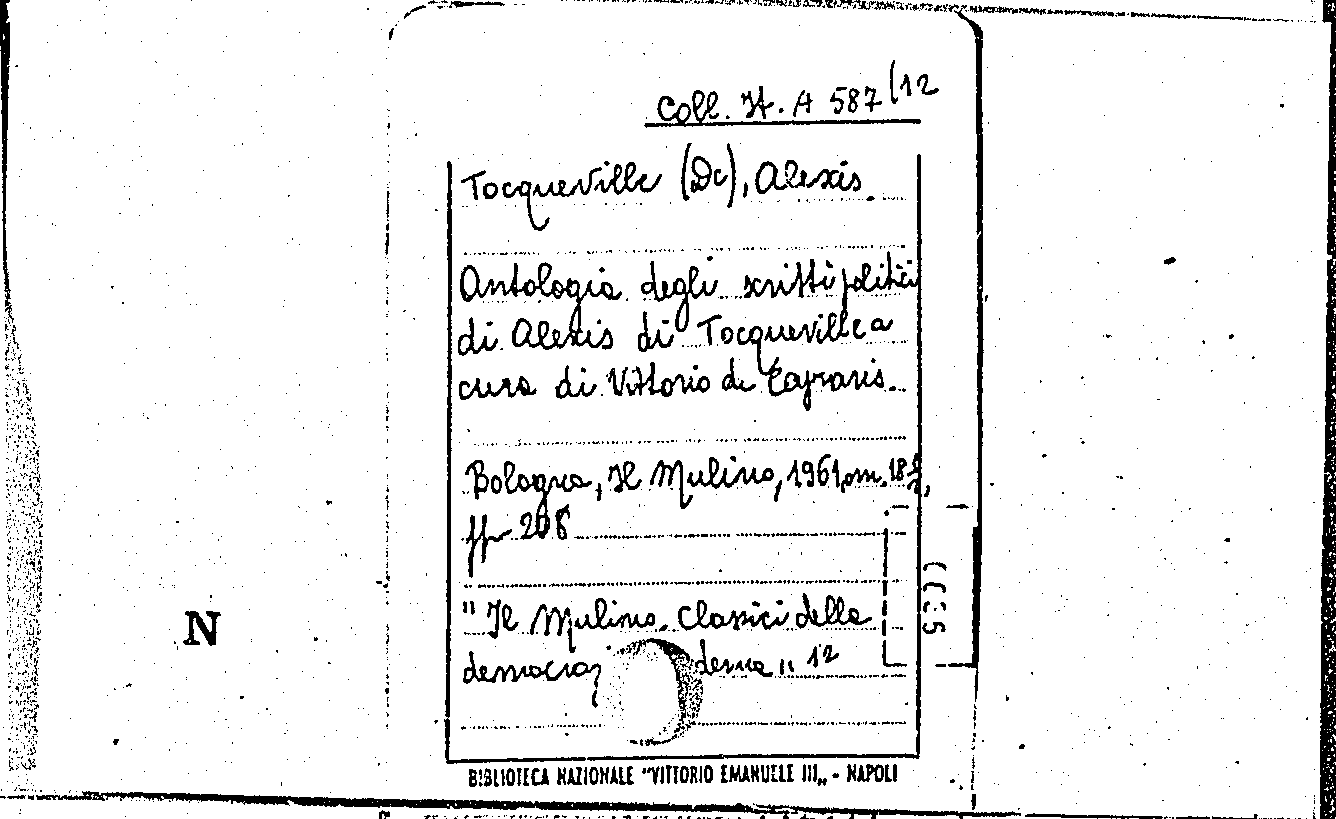 Coll. It. A 587/12
Tocqueville (De), Alexis.
Antologia degli scritti politici
di Alexis di Tocqueville a
cura di Vittorio de Caprariis.
Bologna, Il Mulino, 1961, cm. 18½,
pp 208
" Il Mulino. Classici della
democraz derna " 12
N
BIBLIOTECA NAZIONALE "VITTORIO EMANUELE III„ - NAPOLI